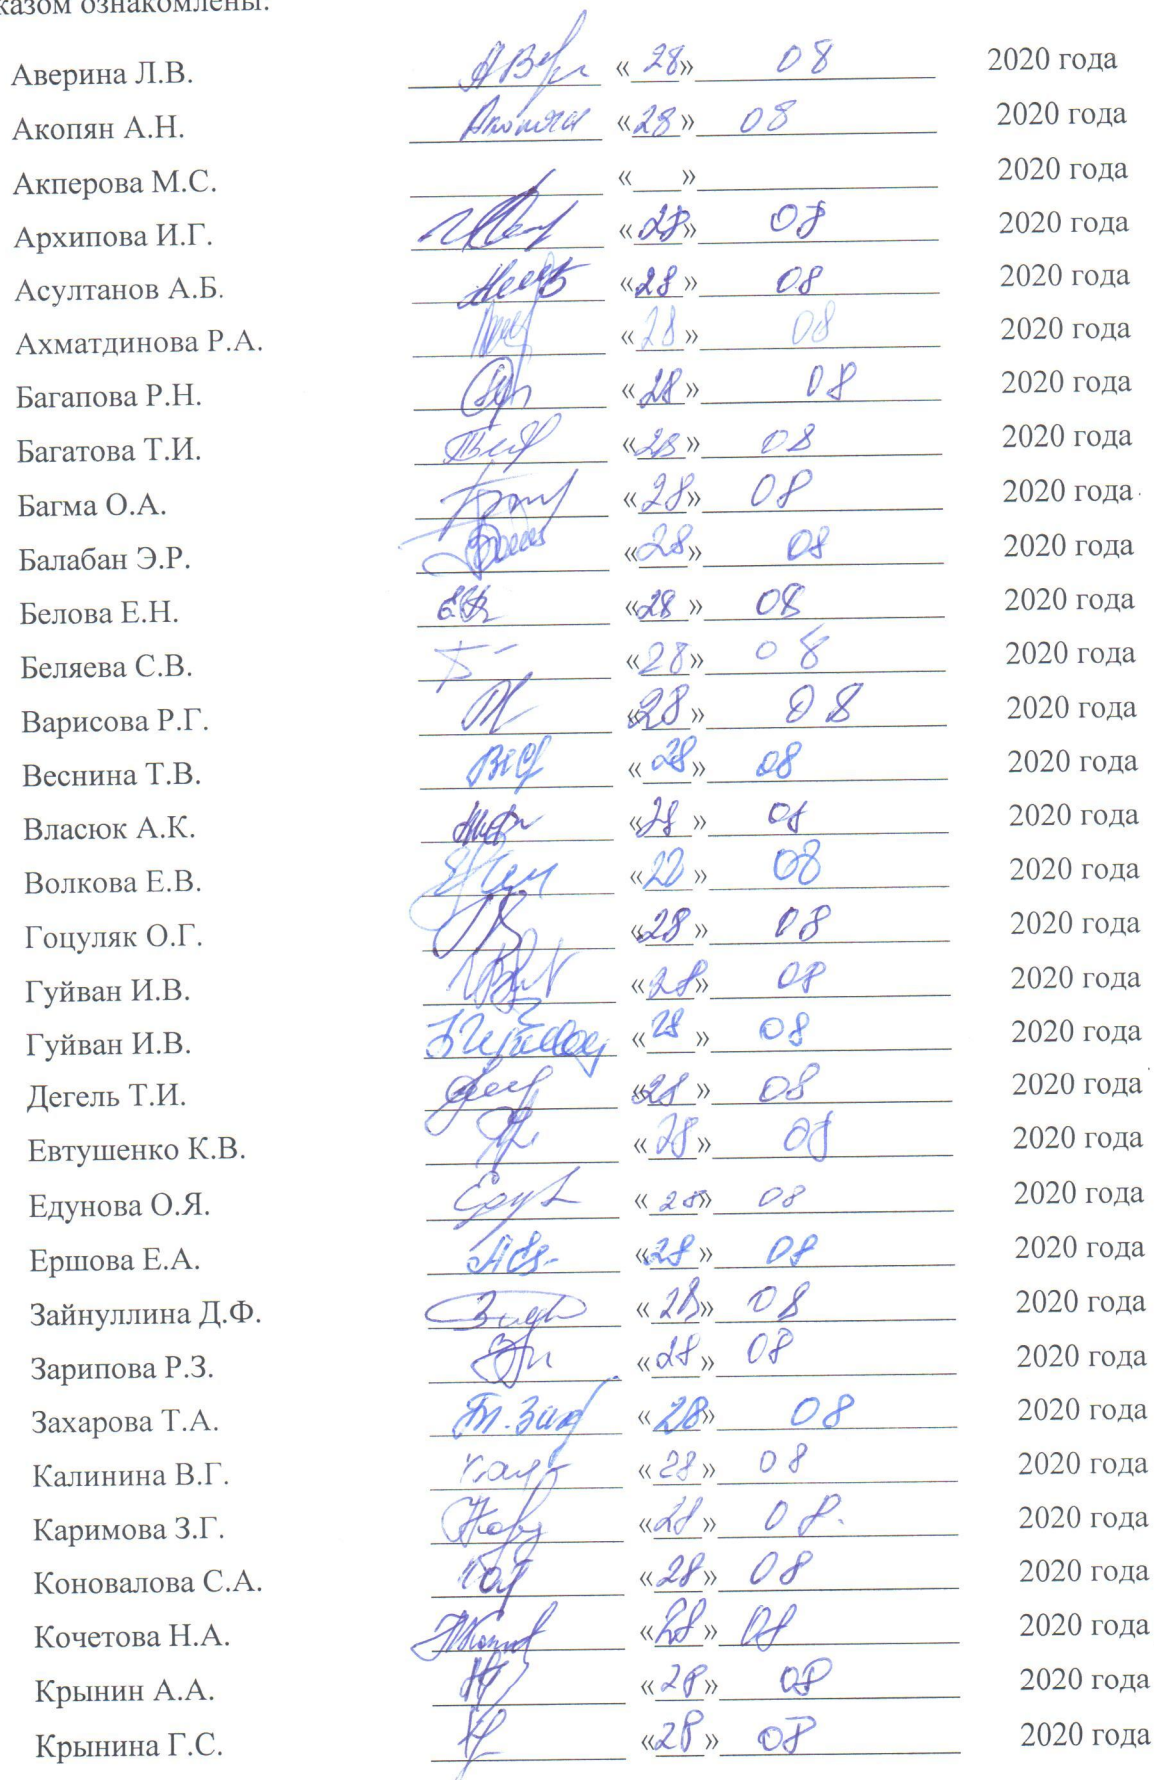 казом ознакомлены:
Аверина Л.В. «28» 08 2020 года
Акопян А.Н. «28» 08 2020 года
Акперова М.С. «___» 2020 года
Архипова И.Г. «28» 08 2020 года
Асултанов А.Б. «28» 08 2020 года
Ахматдинова Р.А. «28» 08 2020 года
Багапова Р.Н. «28» 08 2020 года
Багатова Т.И. «28» 08 2020 года
Багма О.А. «28» 08 2020 года
Балабан Э.Р. «28» 08 2020 года
Белова Е.Н. «28» 08 2020 года
Беляева С.В. «28» 08 2020 года
Варисова Р.Г. «28» 08 2020 года
Веснина Т.В. «28» 08 2020 года
Власюк А.К. «28» 08 2020 года
Волкова Е.В. «28» 08 2020 года
Гоцуляк О.Г. «28» 08 2020 года
Гуйван И.В. «28» 08 2020 года
Гуйван И.В. «28» 08 2020 года
Дегель Т.И. «28» 08 2020 года
Евтушенко К.В. «28» 08 2020 года
Едунова О.Я. «28» 08 2020 года
Ершова Е.А. «28» 08 2020 года
Зайнуллина Д.Ф. «28» 08 2020 года
Зарипова Р.З. «28» 08 2020 года
Захарова Т.А. «28» 08 2020 года
Калинина В.Г. «28» 08 2020 года
Каримова З.Г. «28» 08. 2020 года
Коновалова С.А. «28» 08 2020 года
Кочетова Н.А. «28» 08 2020 года
Крынин А.А. «28» 08 2020 года
Крынина Г.С. «28» 08 2020 года